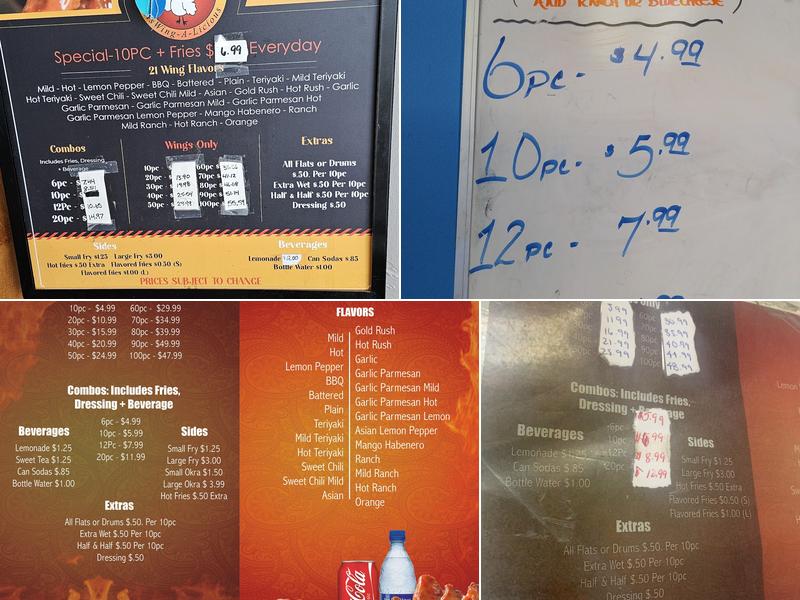 Wing-A-Licious
Special-10PC + Fries $ 6.99 Everyday
21 Wing Flavors
Mild - Hot - Lemon Pepper - BBQ - Battered - Plain - Teriyaki - Mild Teriyaki
Hot Teriyaki - Sweet Chili - Sweet Chili Mild - Asian - Gold Rush - Hot Rush - Garlic
Garlic Parmesan - Garlic Parmesan Mild - Garlic Parmesan Hot
Garlic Parmesan Lemon Pepper - Mango Habenero - Ranch
Mild Ranch - Hot Ranch - Orange
Combos
Includes Fries, Dressing
+ Beverage
6pc -
10pc -
12Pc - 10.65
20pc - 14.97
Wings Only
10pc -
20pc - 13.90
30pc - 19.98
40pc -
50pc -
60pc
70pc
80pc
90pc
100pc 55.59
Extras
All Flats or Drums
$.50. Per 10pc
Extra Wet $.50 Per 10pc
Half & Half $.50 Per 10pc
Dressing $.50
Sides
Small Fry $1.25 Large Fry $3.00
Hot Fries $.50 Extra Flavored Fries $0.50 (S)
Flavored Fries $1.00 (L)
Beverages
Lemonade Can Sodas $.85
Bottle Water $1.00
PRICES SUBJECT TO CHANGE
AND RANCH OR BLUECHEESE )
6pc - $4.99
10pc - $5.99
12pc - 7.99
10pc - $4.99
20pc - $10.99
30pc - $15.99
40pc - $20.99
50pc - $24.99
60pc - $29.99
70pc - $34.99
80pc - $39.99
90pc - $49.99
100pc - $47.99
Combos: Includes Fries,
Dressing + Beverage
6pc - $4.99
10pc - $5.99
12Pc - $7.99
20pc - $11.99
Beverages
Lemonade $1.25
Sweet Tea $1.25
Can Sodas $.85
Bottle Water $1.00
Sides
Small Fry $1.25
Large Fry $3.00
Small Okra $1.50
Large Okra $ 3.99
Hot Fries $.50 Extra
Extras
All Flats or Drums $.50. Per 10pc
Extra Wet $.50 Per 10pc
Half & Half $.50 Per 10pc
Dressing $.50
FLAVORS
Mild
Hot
Lemon Pepper
BBQ
Battered
Plain
Teriyaki
Mild Teriyaki
Hot Teriyaki
Sweet Chili
Sweet Chili Mild
Asian
Gold Rush
Hot Rush
Garlic
Garlic Parmesan
Garlic Parmesan Mild
Garlic Parmesan Hot
Garlic Parmesan Lemon
Asian Lemon Pepper
Mango Habenero
Ranch
Mild Ranch
Hot Ranch
Orange
Coca-Cola
5.99
11.99
16.99
21.99
25.99
60pc
70pc
80pc
90pc
100pc
30.99
35.99
40.99
44.99
48.99
Combos: Includes Fries,
Dressing + Beverage
6pc $5.99
10pc $6.99
12Pc $8.99
20pc $12.99
Beverages
Lemonade
Can Sodas $.85
Bottle Water $1.00
Sides
Small Fry $1.25
Large Fry $3.00
Hot Fries $.50 Extra
Flavored $0.50 (S)
Flavored Fries $1.00 (L)
Extras
All Flats or Drums $.50. Per 10pc
Extra Wet $.50 Per 10pc
Half & Half $.50 Per 10pc
Dressing $.50